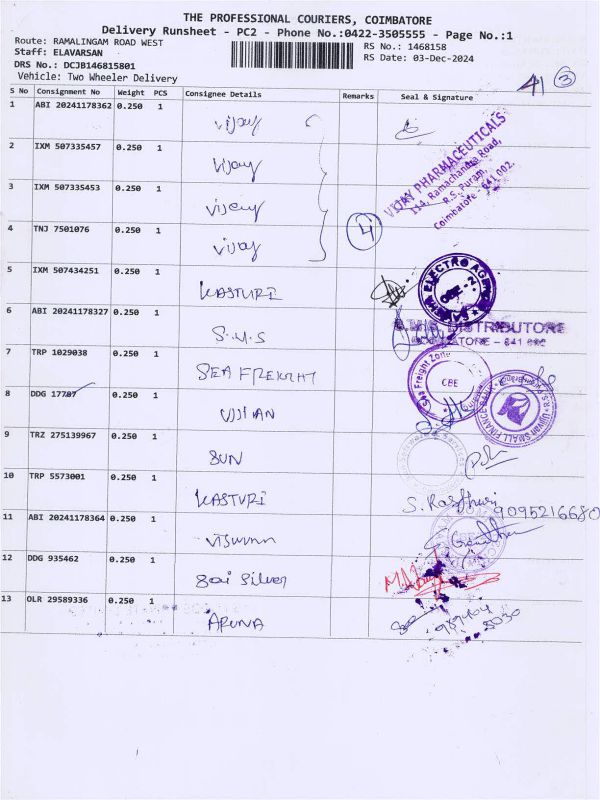 THE PROFESSIONAL COURIERS, COIMBATORE
Delivery Runsheet - PC2 - Phone No.:0422-3505555 - Page No.:1
Route: RAMALINGAM ROAD WEST
RS No.: 1468158
Staff: ELAVARSAN
RS Date: 03-Dec-2024
DRS No.: DCJB146815801
Vehicle: Two Wheeler Delivery
41 3
S No Consignment No Weight PCS Consignee Details Remarks Seal & Signature
1 ABI 20241178362 0.250 1 Vijay
2 IXM 507335457 0.250 1 Vijay
VIJAY PHARMACEUTICALS
114, Ramachandra Road,
R.S. Puram,
Coimbatore - 641 002.
3 IXM 507335453 0.250 1 Vijay
4 TNJ 7501076 0.250 1 Vijay 4
5 IXM 507434251 0.250 1 KASTURI
ELECTRO
6 ABI 20241178327 0.250 1 S.M.S
DISTRIBUTORS
COIMBATORE - 641 002
7 TRP 1029038 0.250 1 SEA FREIGHT
Sea Freight Zone
CBE
8 DDG 17787 0.250 1 UJJIVAN
UJJIVAN SMALL FINANCE BANK
9 TRZ 275139967 0.250 1 SUN
10 TRP 5573001 0.250 1 KASTURI
9095216680
11 ABI 20241178364 0.250 1
12 DDG 935462 0.250 1 Sai Silver
13 OLR 29589336 0.250 1 ARUNA